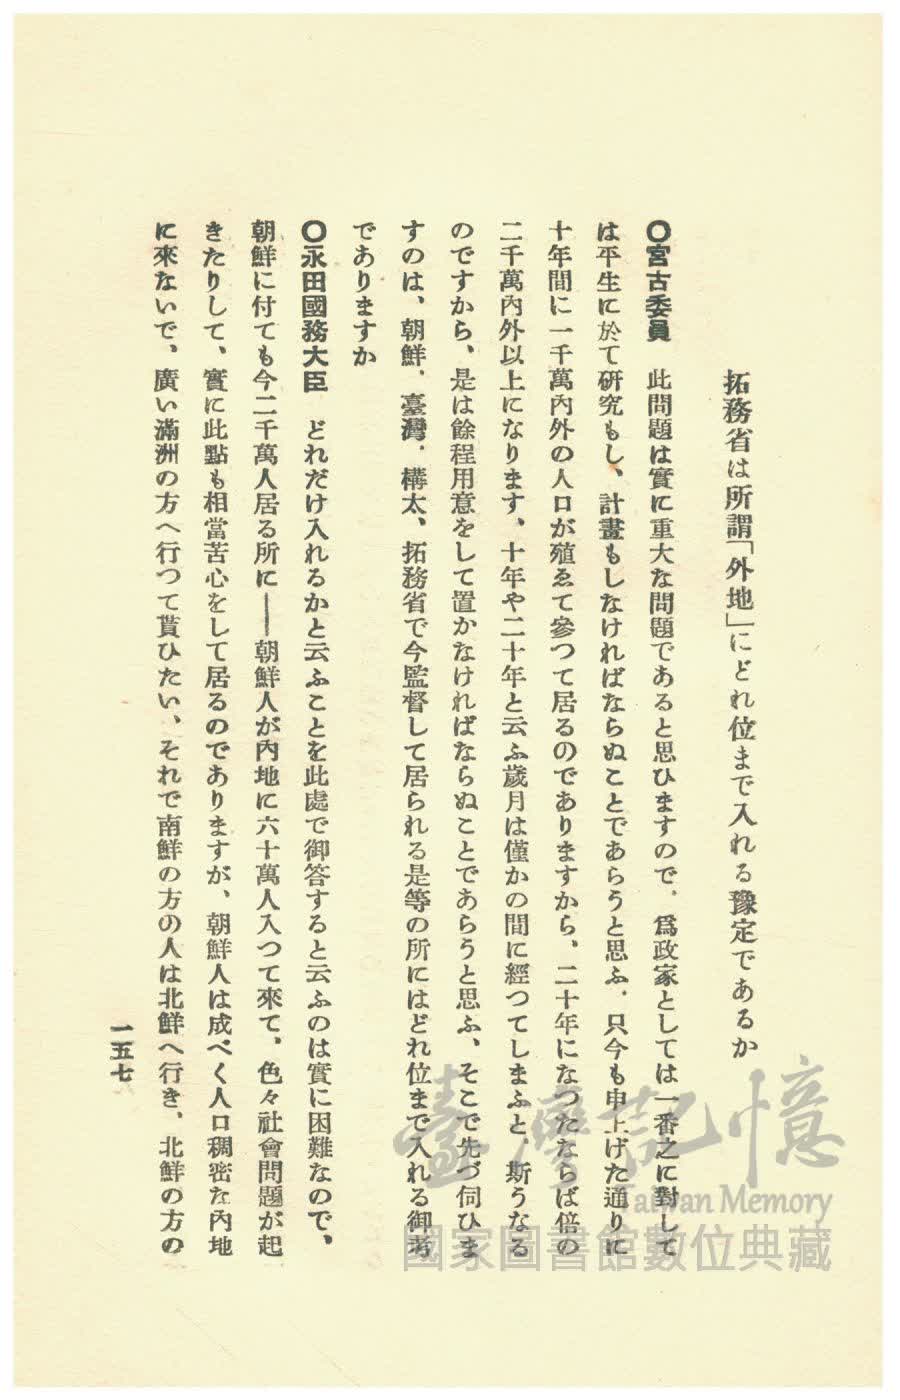 拓務省は所謂「外地」にどれ位まで入れる豫定であるか
〇宮古委員　此問題は實に重大な問題であると思ひますので、爲政家としては一番之に對して
は平生に於て硏究もし、計畫もしなければならぬことであらうと思ふ、只今も申上げた通りに
十年間に一千萬內外の人口が殖ゑて參つて居るのでありますから、二十年になつたならば倍の
二千萬內外以上になります、十年や二十年と云ふ歲月は僅かの間に經つてしまふと、斯うなる
のですから、是は餘程用意をして置かなければならぬことであらうと思ふ、そこで先づ伺ひま
すのは、朝鮮、臺灣、構太、拓務省で今監督して居られる是等の所にはどれ位まで入れる御考
でありますか
〇永田國務大臣　どれだけ入れるかと云ふことを此處で御答すると云ふのは實に困難なので、
朝鮮に付ても今二千萬人居る所に——朝鮮人が內地に六十萬人入つて來て、色々社會問題が起
きたりして、實に此點も相當苦心をして居るのでありますが、朝鮮人は成べく人口稠密な內地
に來ないで、廣い滿洲の方へ行つて貰ひたい、それで南鮮の方の人は北鮮へ行き、北鮮の方の
一五七
臺灣記憶
Taiwan Memory
國家圖書館數位典藏